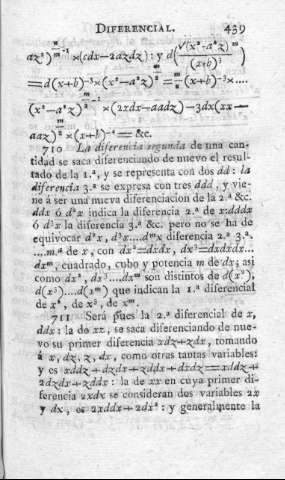 DIFERENCIAL. 439
az²)^(n/m −1) ×(cdx−2azdz): y d(√(x²−a²z)^m / (x+b)³)
=d(x+b)⁻³×(x²−a²z)^(m/2) = m/2 (x+b)⁻³×....
(x²−a²z)^(m/2 −1) ×(2xdx−aadz)−3dx(xx−
aaz)^(m/2) ×(x+b)⁻⁴ = &c.
710 La diferencia segunda de una can-
tidad se saca diferenciando de nuevo el resul-
tado de la 1.ª, y se representa con dos dd : la
diferencia 3.ª se expresa con tres ddd, y vie-
ne á ser una nueva diferenciacion de la 2.ª &c.
ddx ó d²x indica la diferencia 2.ª de x:dddx
ó d³x la diferencia 3.ª &c. pero no se ha de
equivocar d²x, d³x....dᵐx diferencia 2.ª 3.ª,
....m.ª de x, con dx²=dxdx, dx³=dxdxdx...
dxᵐ, cuadrado, cubo y potencia m de dx; asi
como dx², dx³....dxᵐ son distintos de d(x²),
d(x³)....d(xᵐ) que indican la 1.ª diferencial
de x², de x³, de xᵐ.
711 Será pues la 2.ª diferencial de x,
ddx: la de xz, se saca diferenciando de nue-
vo su primer diferencia xdz+zdx, tomando
á x, dz, z, dx, como otras tantas variables:
y es xddz+dzdx+zddx+dxdz=xddz+
2dzdx+zddx: la de xx en cuya primer di-
ferencia 2xdx se consideran dos variables 2x
y dx, es 2xddx+2dx²: y generalmente la